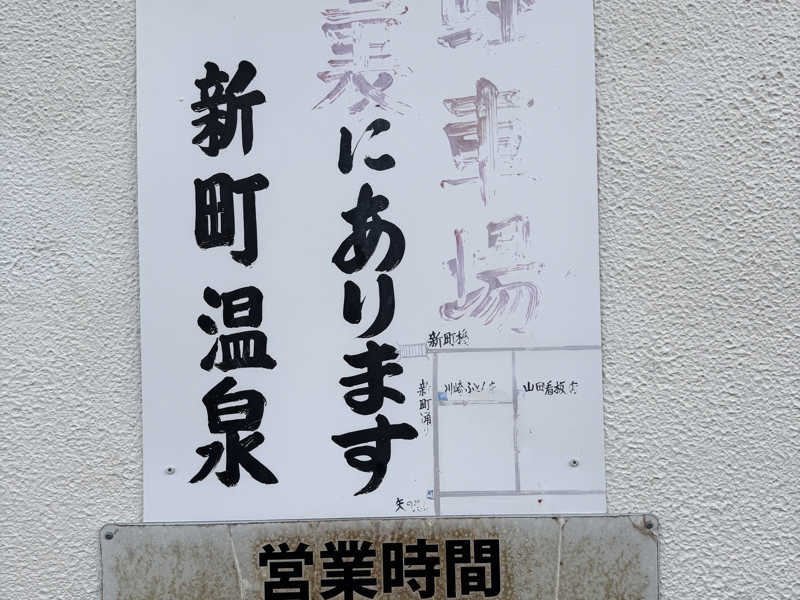 車場
裏にあります
新町温泉
新町橋
新町通り
川崎ふとん
山田看板
矢の
営業時間